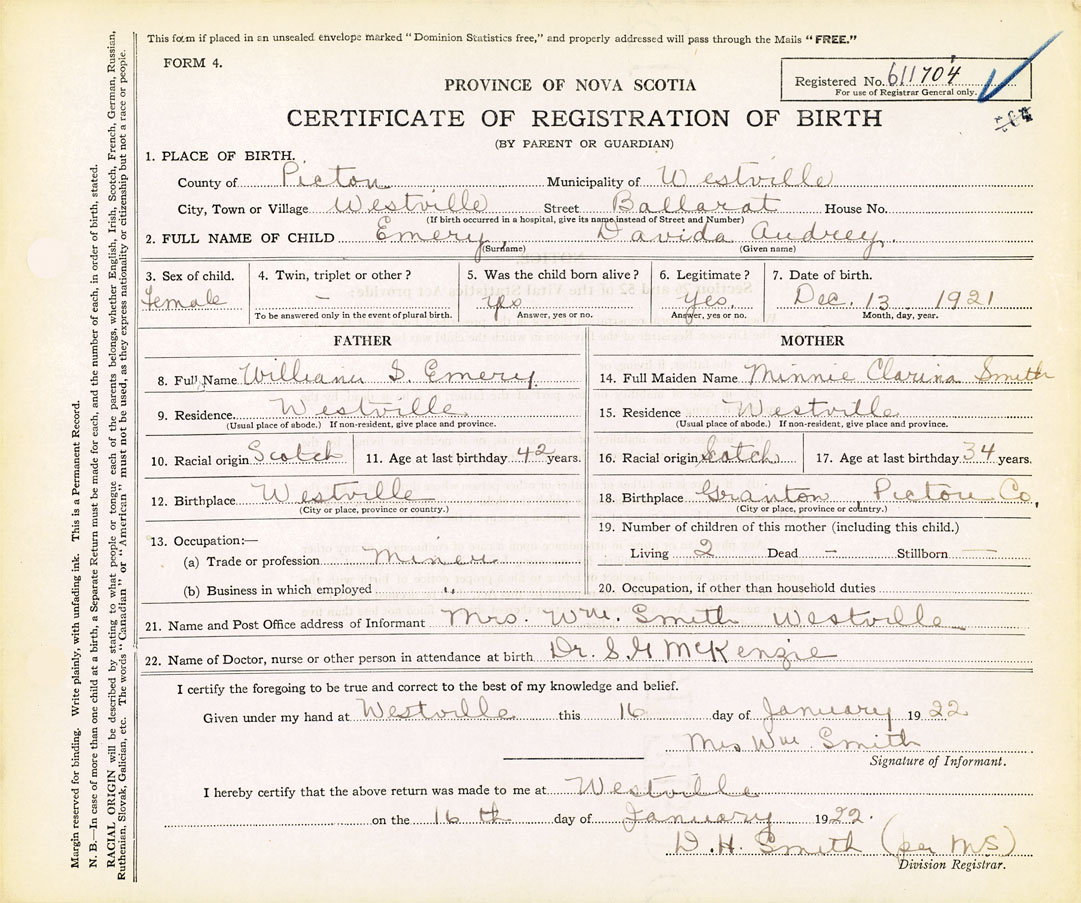 This form if placed in an unsealed envelope marked "Dominion Statistics free," and properly addressed will pass through the Mails "FREE."
FORM 4.
Registered No. 611704
For use of Registrar General only.
PROVINCE OF NOVA SCOTIA
CERTIFICATE OF REGISTRATION OF BIRTH
(BY PARENT OR GUARDIAN)
1. PLACE OF BIRTH.
County of Pictou Municipality of Westville
City, Town or Village Westville Street Ballarat House No.
(If birth occurred in a hospital, give its name instead of Street and Number)
2. FULL NAME OF CHILD Emery, Davida Audrey.
(Surname) (Given name)
3. Sex of child. female
4. Twin, triplet or other? –
To be answered only in the event of plural birth.
5. Was the child born alive? yes
Answer, yes or no.
6. Legitimate? Yes.
Answer, yes or no.
7. Date of birth. Dec. 13 1921
Month, day, year.
FATHER
8. Full Name William S. Emery.
9. Residence. Westville
(Usual place of abode.) If non-resident, give place and province.
10. Racial origin Scotch
11. Age at last birthday 42 years.
12. Birthplace Westville
(City or place, province or country.)
13. Occupation:—
(a) Trade or profession Miner
(b) Business in which employed "
MOTHER
14. Full Maiden Name Minnie Clarina Smith
15. Residence Westville
(Usual place of abode.) If non-resident, give place and province.
16. Racial origin Scotch
17. Age at last birthday 34 years.
18. Birthplace Granton, Pictou Co,
(City or place, province or country.)
19. Number of children of this mother (including this child.)
Living 2 Dead – Stillborn —
20. Occupation, if other than household duties
21. Name and Post Office address of Informant Mrs. Wm. Smith Westville
22. Name of Doctor, nurse or other person in attendance at birth Dr. S. G McKenzie
I certify the foregoing to be true and correct to the best of my knowledge and belief.
Given under my hand at Westville this 16 day of January 1922
Mrs Wm Smith
Signature of Informant.
I hereby certify that the above return was made to me at Westville
on the 16th day of January 1922.
D. H. Smith (per M S)
Division Registrar.
Margin reserved for binding. Write plainly, with unfading ink. This is a Permanent Record.
N. B.—In case of more than one child at a birth, a Separate Return must be made for each, and the number of each, in order of birth, stated.
RACIAL ORIGIN will be described by stating to what people or tongue each of the parents belongs, whether English, Irish, Scotch, French, German, Russian,
Ruthenian, Slovak, Galician, etc. The words "Canadian" or "American" must not be used, as they express nationality or citizenship but not a race or people.